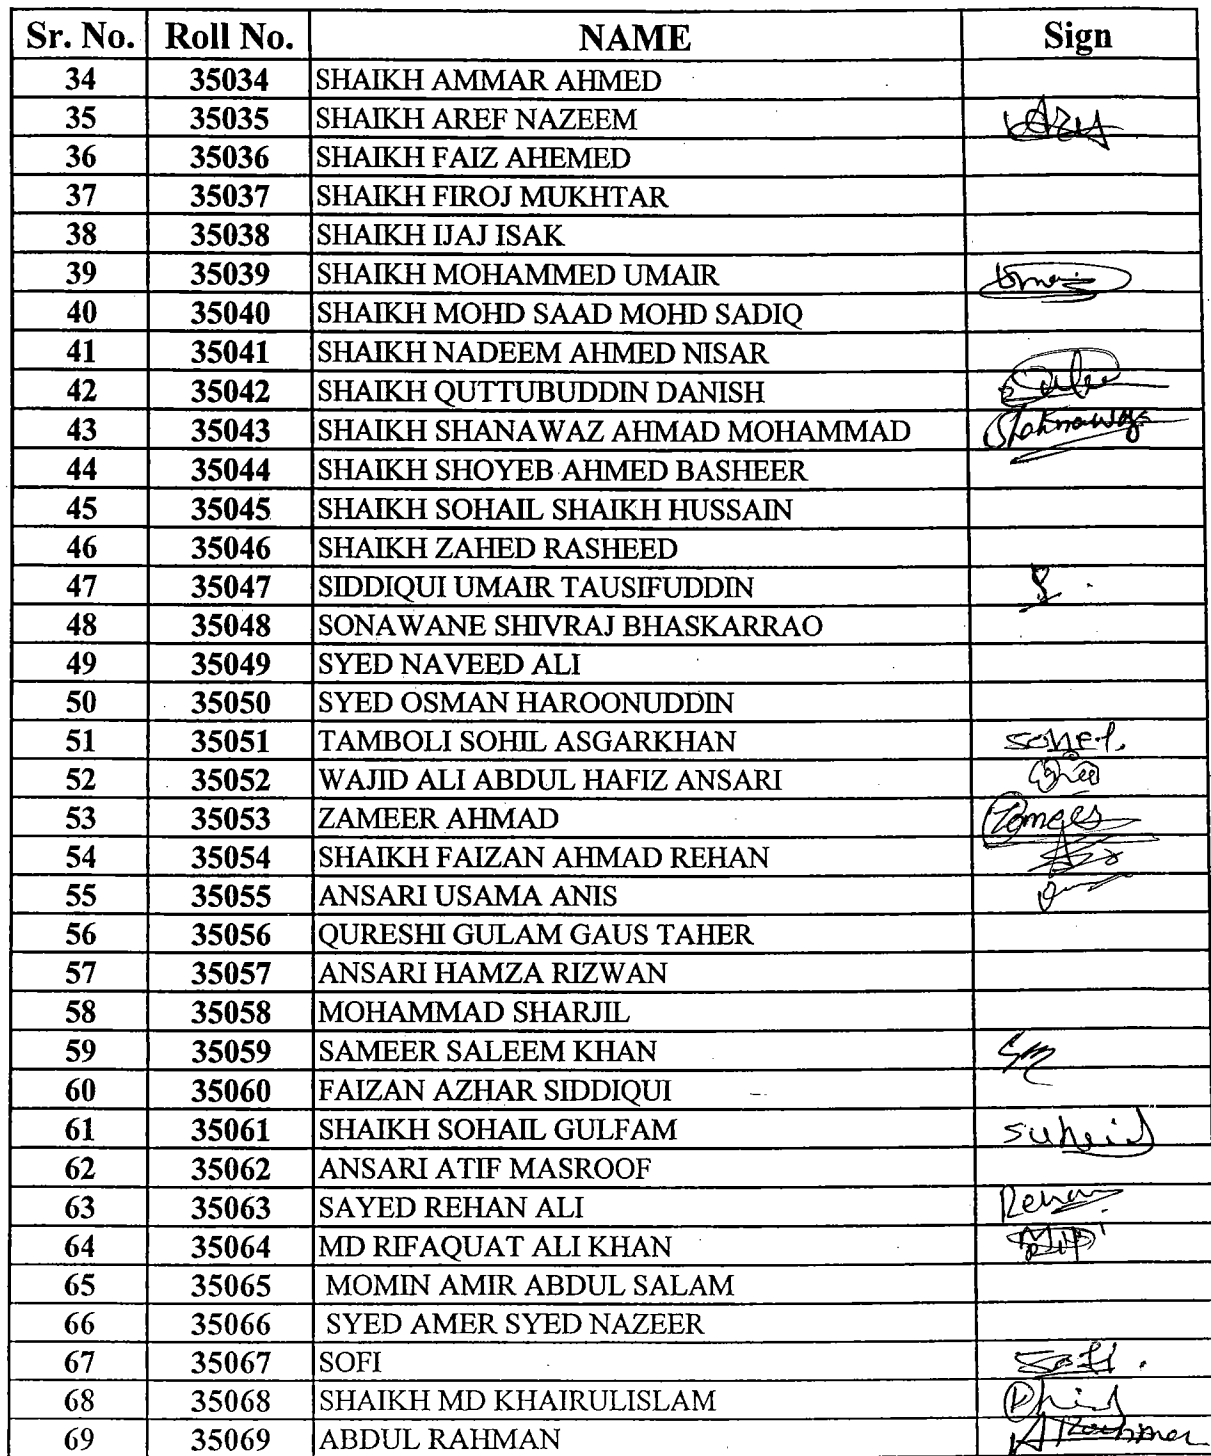 Sr. No. Roll No. NAME Sign
34 35034 SHAIKH AMMAR AHMED
35 35035 SHAIKH AREF NAZEEM
36 35036 SHAIKH FAIZ AHEMED
37 35037 SHAIKH FIROJ MUKHTAR
38 35038 SHAIKH IJAJ ISAK
39 35039 SHAIKH MOHAMMED UMAIR
40 35040 SHAIKH MOHD SAAD MOHD SADIQ
41 35041 SHAIKH NADEEM AHMED NISAR
42 35042 SHAIKH QUTTUBUDDIN DANISH
43 35043 SHAIKH SHANAWAZ AHMAD MOHAMMAD Shahnawaz
44 35044 SHAIKH SHOYEB AHMED BASHEER
45 35045 SHAIKH SOHAIL SHAIKH HUSSAIN
46 35046 SHAIKH ZAHED RASHEED
47 35047 SIDDIQUI UMAIR TAUSIFUDDIN
48 35048 SONAWANE SHIVRAJ BHASKARRAO
49 35049 SYED NAVEED ALI
50 35050 SYED OSMAN HAROONUDDIN
51 35051 TAMBOLI SOHIL ASGARKHAN
52 35052 WAJID ALI ABDUL HAFIZ ANSARI
53 35053 ZAMEER AHMAD
54 35054 SHAIKH FAIZAN AHMAD REHAN
55 35055 ANSARI USAMA ANIS
56 35056 QURESHI GULAM GAUS TAHER
57 35057 ANSARI HAMZA RIZWAN
58 35058 MOHAMMAD SHARJIL
59 35059 SAMEER SALEEM KHAN
60 35060 FAIZAN AZHAR SIDDIQUI
61 35061 SHAIKH SOHAIL GULFAM
62 35062 ANSARI ATIF MASROOF
63 35063 SAYED REHAN ALI Rehan
64 35064 MD RIFAQUAT ALI KHAN
65 35065 MOMIN AMIR ABDUL SALAM
66 35066 SYED AMER SYED NAZEER
67 35067 SOFI Sofi.
68 35068 SHAIKH MD KHAIRULISLAM
69 35069 ABDUL RAHMAN